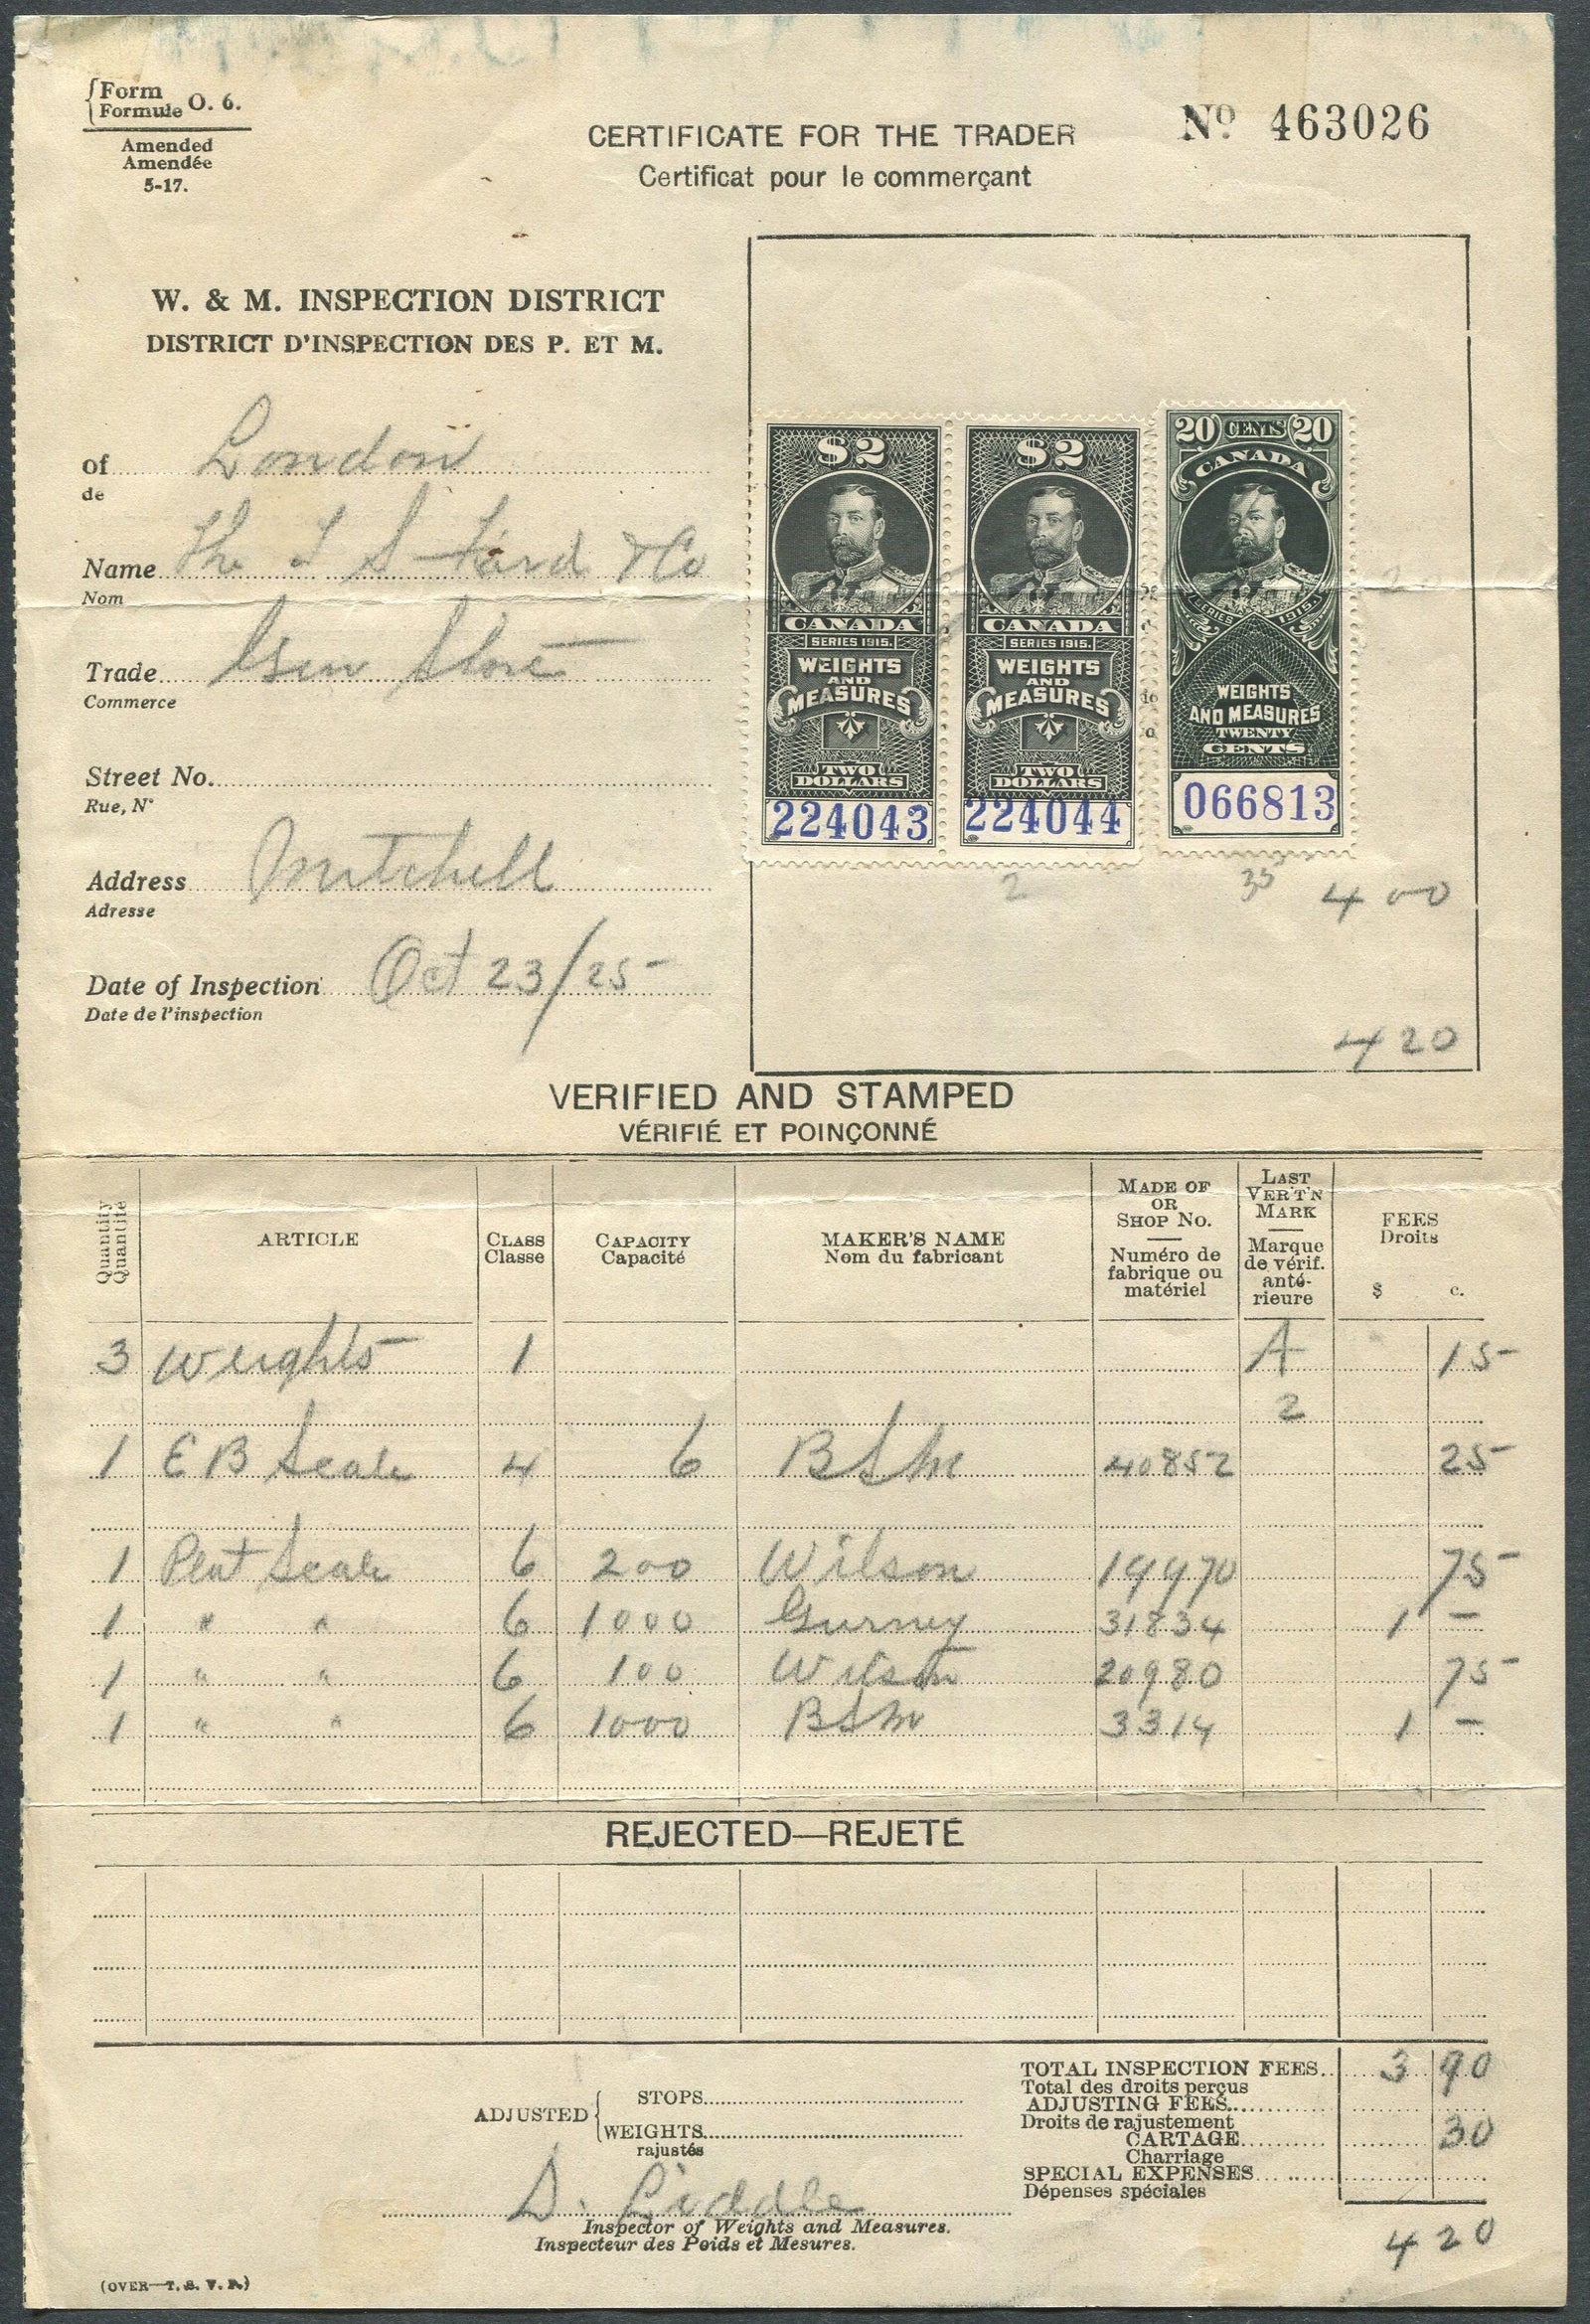 Form
Formule O. 6.
Amended
Amendée
5-17.
CERTIFICATE FOR THE TRADER
Certificat pour le commerçant
Nº 463026
W. & M. INSPECTION DISTRICT
DISTRICT D'INSPECTION DES P. ET M.
of London
de
Name The S Ford & Co
Nom
Trade Gen Store
Commerce
Street No.
Rue, Nº
Address Mitchell
Adresse
Date of Inspection Oct 23/25
Date de l'inspection
$2
CANADA
SERIES 1915.
WEIGHTS
AND
MEASURES
TWO
DOLLARS
224043
$2
CANADA
SERIES 1915.
WEIGHTS
AND
MEASURES
TWO
DOLLARS
224044
20 CENTS 20
CANADA
SERIES 1915.
WEIGHTS
AND MEASURES
TWENTY
CENTS
066813
20
2 35 4 00
4 20
VERIFIED AND STAMPED
VÉRIFIÉ ET POINÇONNÉ
Quantity
Quantité
ARTICLE
CLASS
Classe
CAPACITY
Capacité
MAKER'S NAME
Nom du fabricant
MADE OF
OR
SHOP No.
Numéro de
fabrique ou
matériel
LAST
VER'T'N
MARK
Marque
de vérif.
anté-
rieure
FEES
Droits
$ c.
3 Weights 1 A 15
2
1 E B Scale 4 6 B S M 40852 25
1 Plat Scale 6 200 Wilson 19970 75
1 " " 6 1000 Gurney 31834 1 —
1 " " 6 100 Wilson 20980 75
1 " " 6 1000 BSM 3314 1 —
REJECTED—REJETÉ
ADJUSTED
STOPS
WEIGHTS
rajustés
TOTAL INSPECTION FEES 3 90
Total des droits perçus
ADJUSTING FEES
Droits de rajustement
CARTAGE 30
Charriage
SPECIAL EXPENSES
Dépenses spéciales
4 20
D. Liddle
Inspector of Weights and Measures.
Inspecteur des Poids et Mesures.
(OVER—T. S. V. P.)